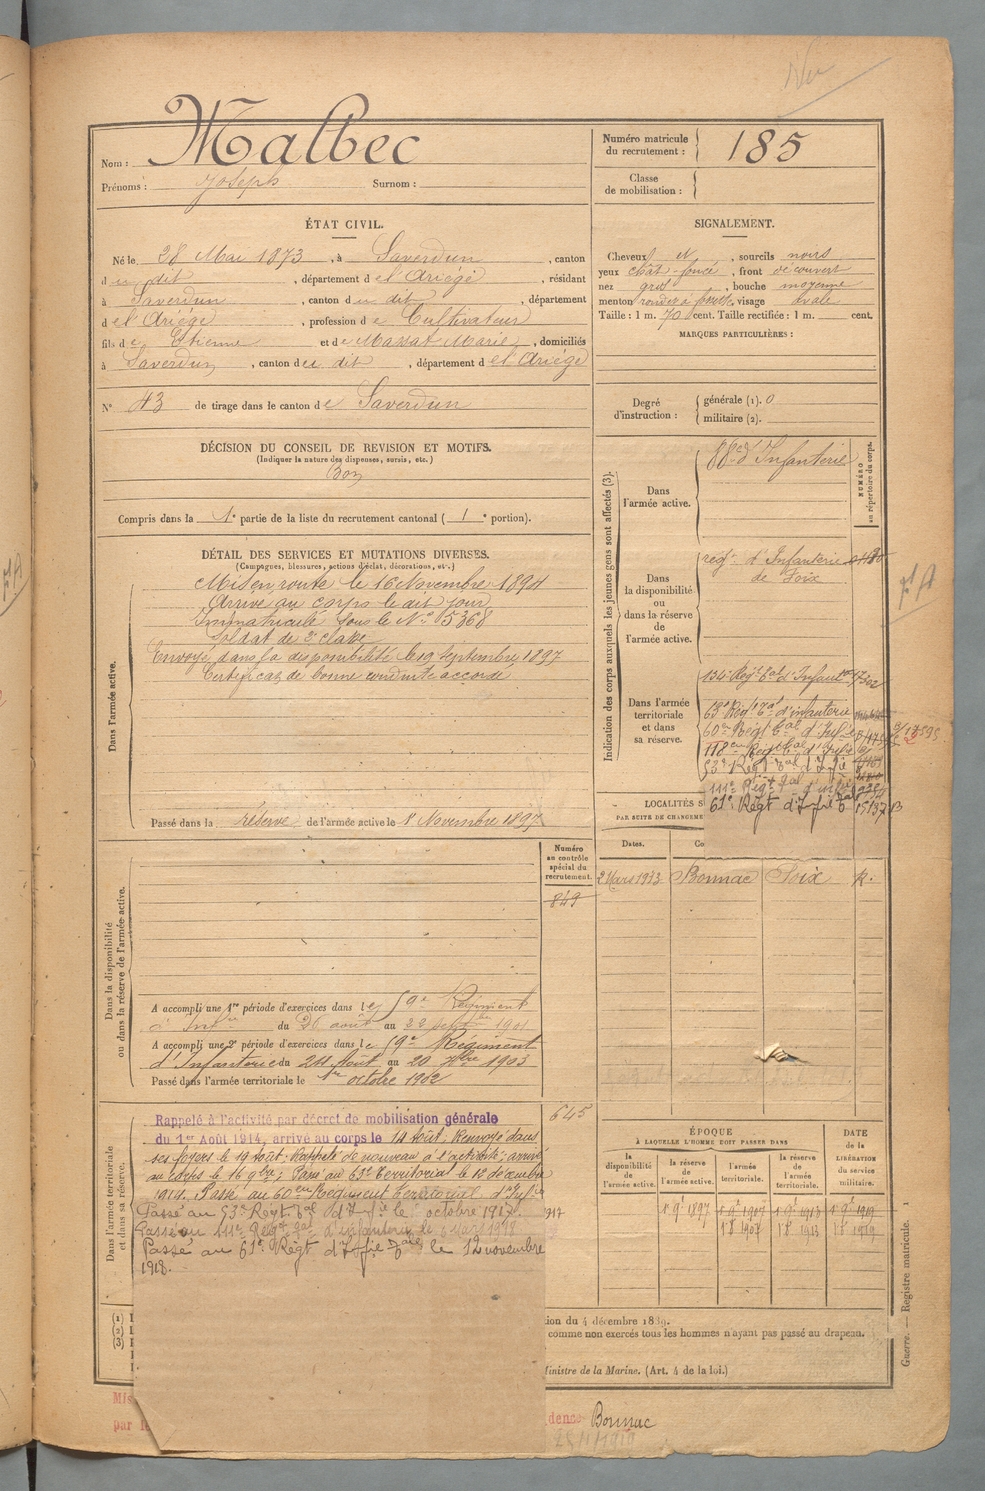 Nom : Malbec
Prénoms : Joseph Surnom :
Numéro matricule du recrutement : 185
Classe de mobilisation :
ÉTAT CIVIL.
Né le 28 Mai 1873, à Saverdun, canton
du dit, département de l'Ariège, résidant
à Saverdun, canton du dit, département
de l'Ariège, profession de Cultivateur
fils de Etienne et de Massat Marie, domiciliés
à Saverdun, canton du dit, département de l'Ariège
N° 43 de tirage dans le canton de Saverdun
SIGNALEMENT.
Cheveux et, sourcils noirs
yeux chât-foncé, front découvert
nez gros, bouche moyenne
menton rond et à fossette, visage ovale
Taille : 1 m. 70 cent. Taille rectifiée : 1 m. cent.
MARQUES PARTICULIÈRES :
Degré d'instruction : générale (1). 0
militaire (2).
DÉCISION DU CONSEIL DE REVISION ET MOTIFS.
(Indiquer la nature des dispenses, sursis, etc.)
Bon
Compris dans la 1e partie de la liste du recrutement cantonal ( 1 e portion).
DÉTAIL DES SERVICES ET MUTATIONS DIVERSES.
(Campagnes, blessures, actions d'éclat, décorations, etc.)
Dans l'armée active.
Mis en route le 16 Novembre 1894
Arrivé au corps le dit jour
Immatriculé sous le N° 5368
Soldat de 2e classe
Envoyé dans la disponibilité le 19 Septembre 1897
Certificat de bonne conduite accordé
Passé dans la réserve de l'armée active le 1er Novembre 1897
Indication des corps auxquels les jeunes gens sont affectés (3).
NUMÉRO au répertoire du corps.
Dans l'armée active.
88e d'Infanterie
Dans la disponibilité ou dans la réserve de l'armée active.
regt d'Infanterie
de Foix
Dans l'armée territoriale et dans sa réserve.
134e Regt tal d'Infant
63e Regt tal d'infanterie
60em Regt tal d'Infie
118em Regt tal d'Infie
53e Regt tal d'Infie
111e Regt tal d'infie
61e Regt d'Infie tal 15137
LOCALITÉS S
PAR SUITE DE CHANGEME
Dates.
2 Mars 1913 Bonnac Foix R.
Numéro au contrôle spécial du recrutement.
849
Dans la disponibilité ou dans la réserve de l'armée active.
A accompli une 1re période d'exercices dans le 59e Régiment
d'Infie du 26 août au 22 septbre 1901
A accompli une 2e période d'exercices dans le 59e Régiment
d'Infanterie du 24 Août au 20 7bre 1903
Passé dans l'armée territoriale le 1er octobre 1902
645
Dans l'armée territoriale et dans sa réserve.
Rappelé à l'activité par décret de mobilisation générale
du 1er Août 1914, arrivé au corps le 14 Août; Renvoyé dans
ses foyers le 19 Août; Rappelé de nouveau à l'activité; arrivé
au corps le 16 9bre; Passé au 63e territorial le 12 décembre
1914. Passé au 60em Régiment territorial d'Infie
Passé au 53e Regt tal d'Infie le 1er octobre 1917.
Passé au 111e Regt tal d'infanterie le 6 mars 1918
Passé au 61e Régt d'Infie tale le 12 novembre
1918.
ÉPOQUE
À LAQUELLE L'HOMME DOIT PASSER DANS
DATE de la LIBÉRATION du service militaire.
la disponibilité de l'armée active.
la réserve de l'armée active.
l'armée territoriale.
la réserve de l'armée territoriale.
1er 9bre 1897 1er 9bre 1907 1er 9bre 1913 1er 9bre 1919
1er 8 1907 1er 8 1913 1er 8 1919
(1)
(2)
(3)
tion du 4 décembre 1889.
comme non exercés tous les hommes n'ayant pas passé au drapeau.
Ministre de la Marine. (Art. 4 de la loi.)
Guerre. — Registre matricule. 1
Mis
par l
dence Bonnac